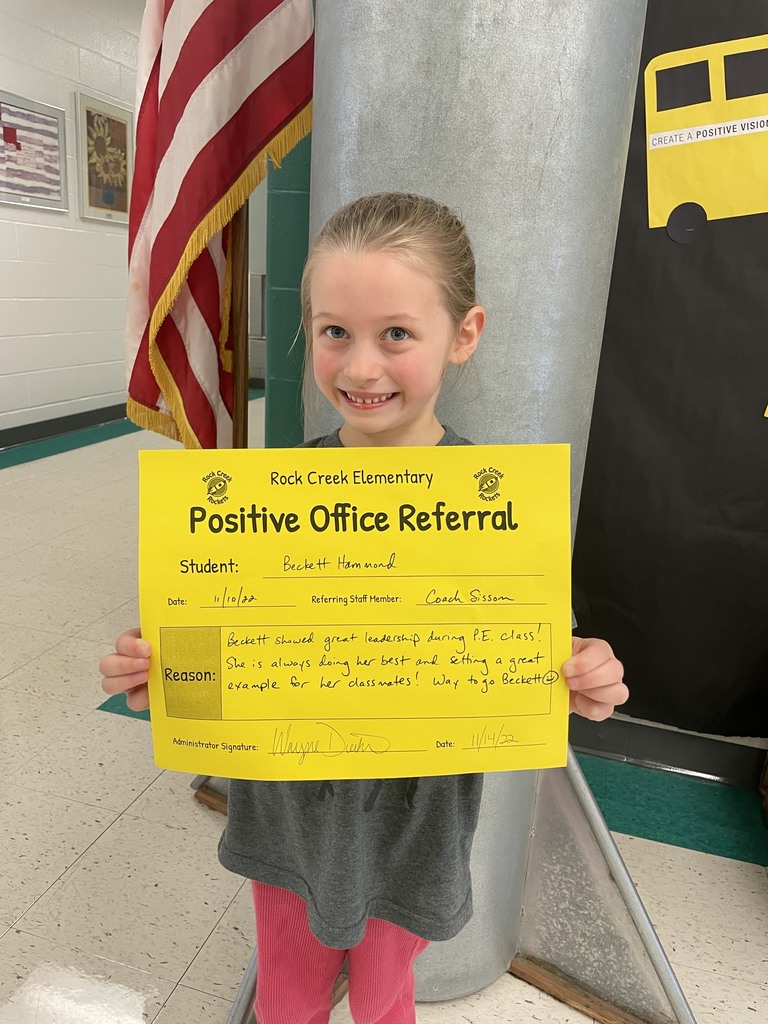 CREATE A POSITIVE VISION
Rock Creek Elementary
Rock Creek Rockets
Rock Creek Rockets
Positive Office Referral
Student: Beckett Hammond
Date: 11/10/22 Referring Staff Member: Coach Sissom
Reason:
Beckett showed great leadership during P.E. class!
She is always doing her best and setting a great
example for her classmates! Way to go Beckett
Administrator Signature: Wayne Date: 11/14/22